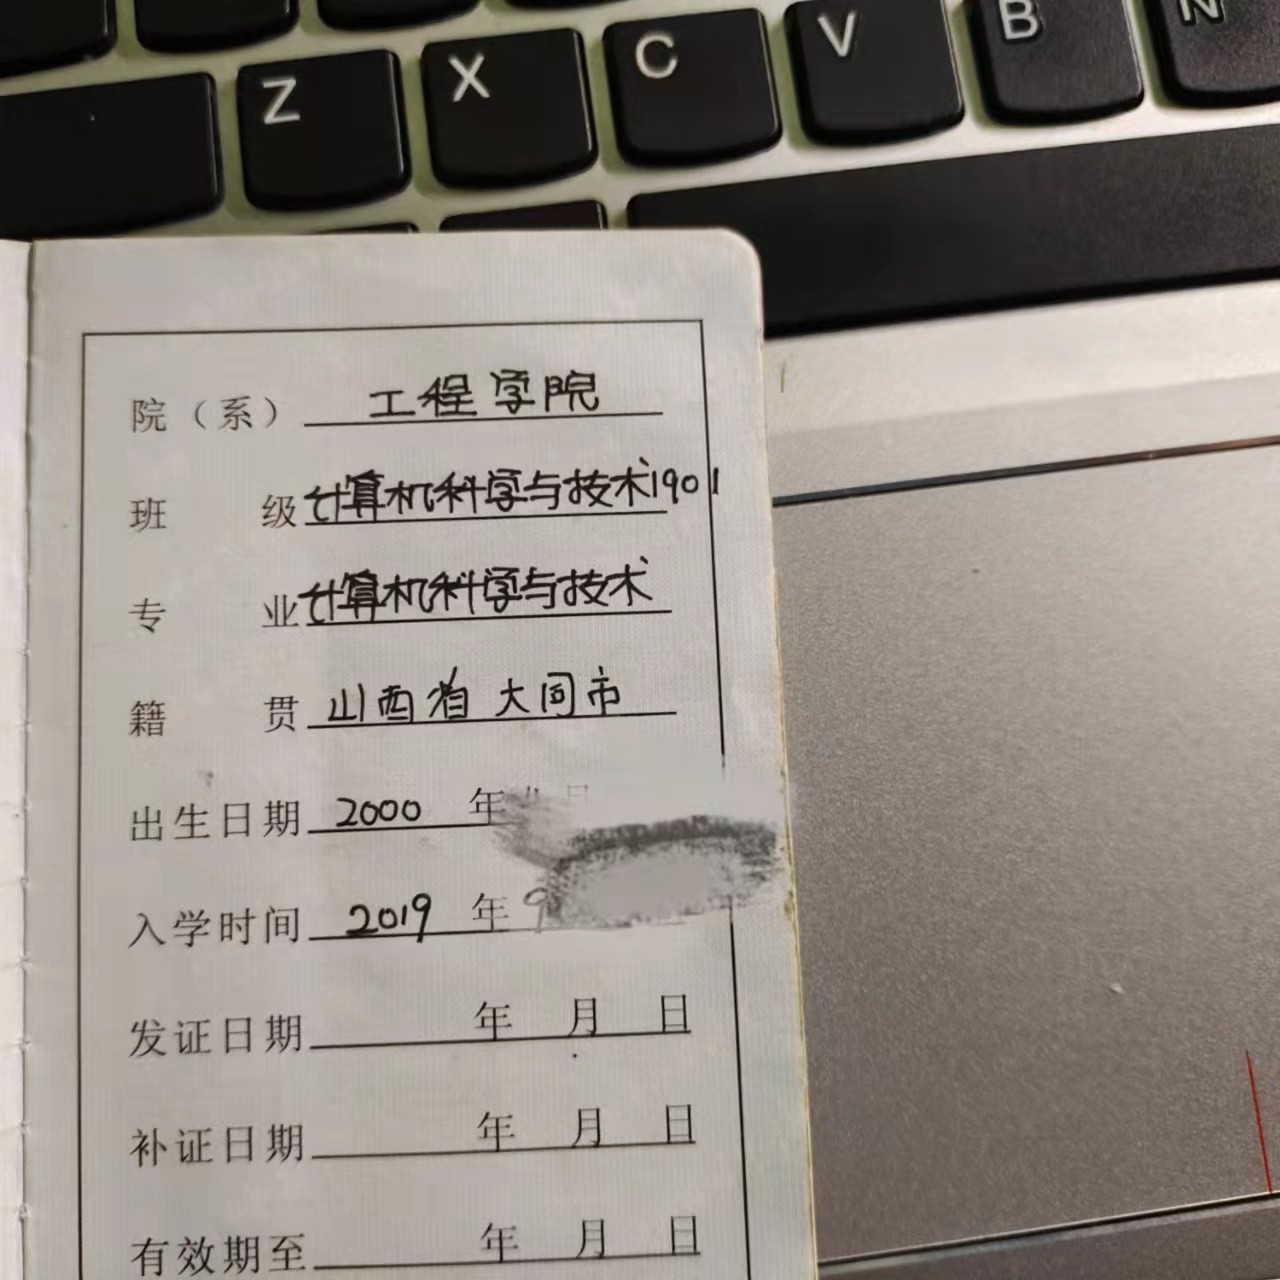 Z X C V B N
院（系） 工程学院
班 级 计算机科学与技术1901
专 业 计算机科学与技术
籍 贯 山西省大同市
出生日期 2000 年
入学时间 2019 年 9
发证日期 年 月 日
补证日期 年 月 日
有效期至 年 月 日